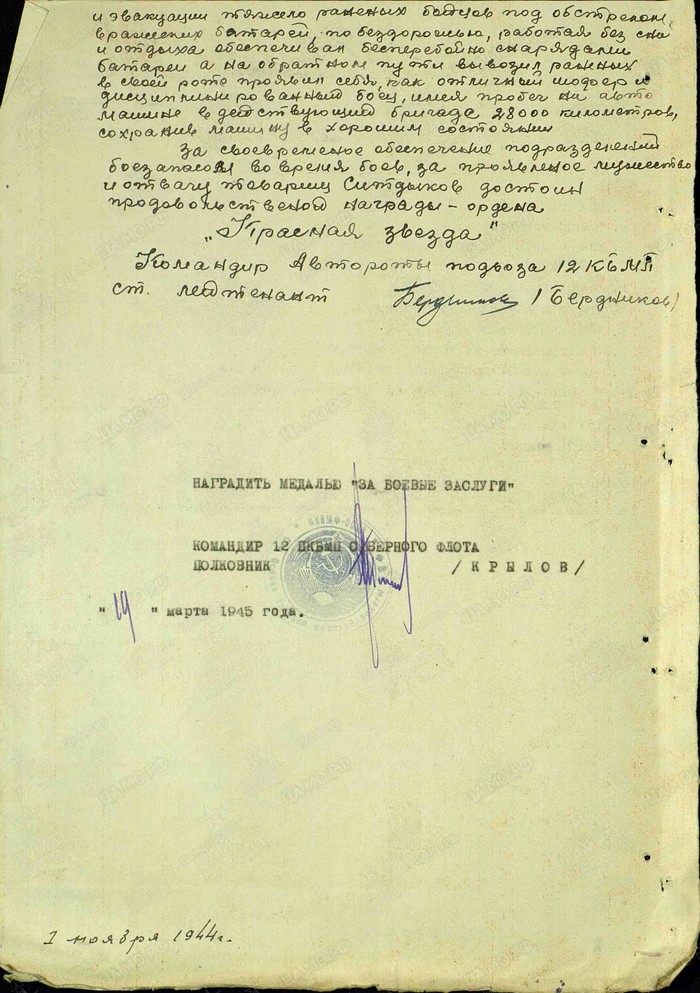 и эвакуации тяжело раненых бойцов под обстрелом,
вражеских батарей, по бездорожью, работая без сна
и отдыха обеспечивал бесперебойно снарядами
батареи а на обратном пути вывозил раненых
в своей роте проявил себя, как отличный шофер и
дисциплинированный боец, имея пробег на авто
машине в действующий бригаде 28000 километров,
сохранив машину в хорошим состоянии
За своевременое обеспечение подразделений
боезапасом во время боев, за проявленое мужество
и отвагу товарищ Ситдыков достоин
продовольственой награды - ордена
„Красная звезда"
Командир Автороты подвоза 12 КБМП
ст. лейтенант Бердников / Бердников /
НАГРАДИТЬ МЕДАЛЬЮ "ЗА БОЕВЫЕ ЗАСЛУГИ"
КОМАНДИР 12 ПКБМП СЕВЕРНОГО ФЛОТА
ПОЛКОВНИК / К Р Ы Л О В /
" 14 " марта 1945 года.
1 ноября 1944 г.